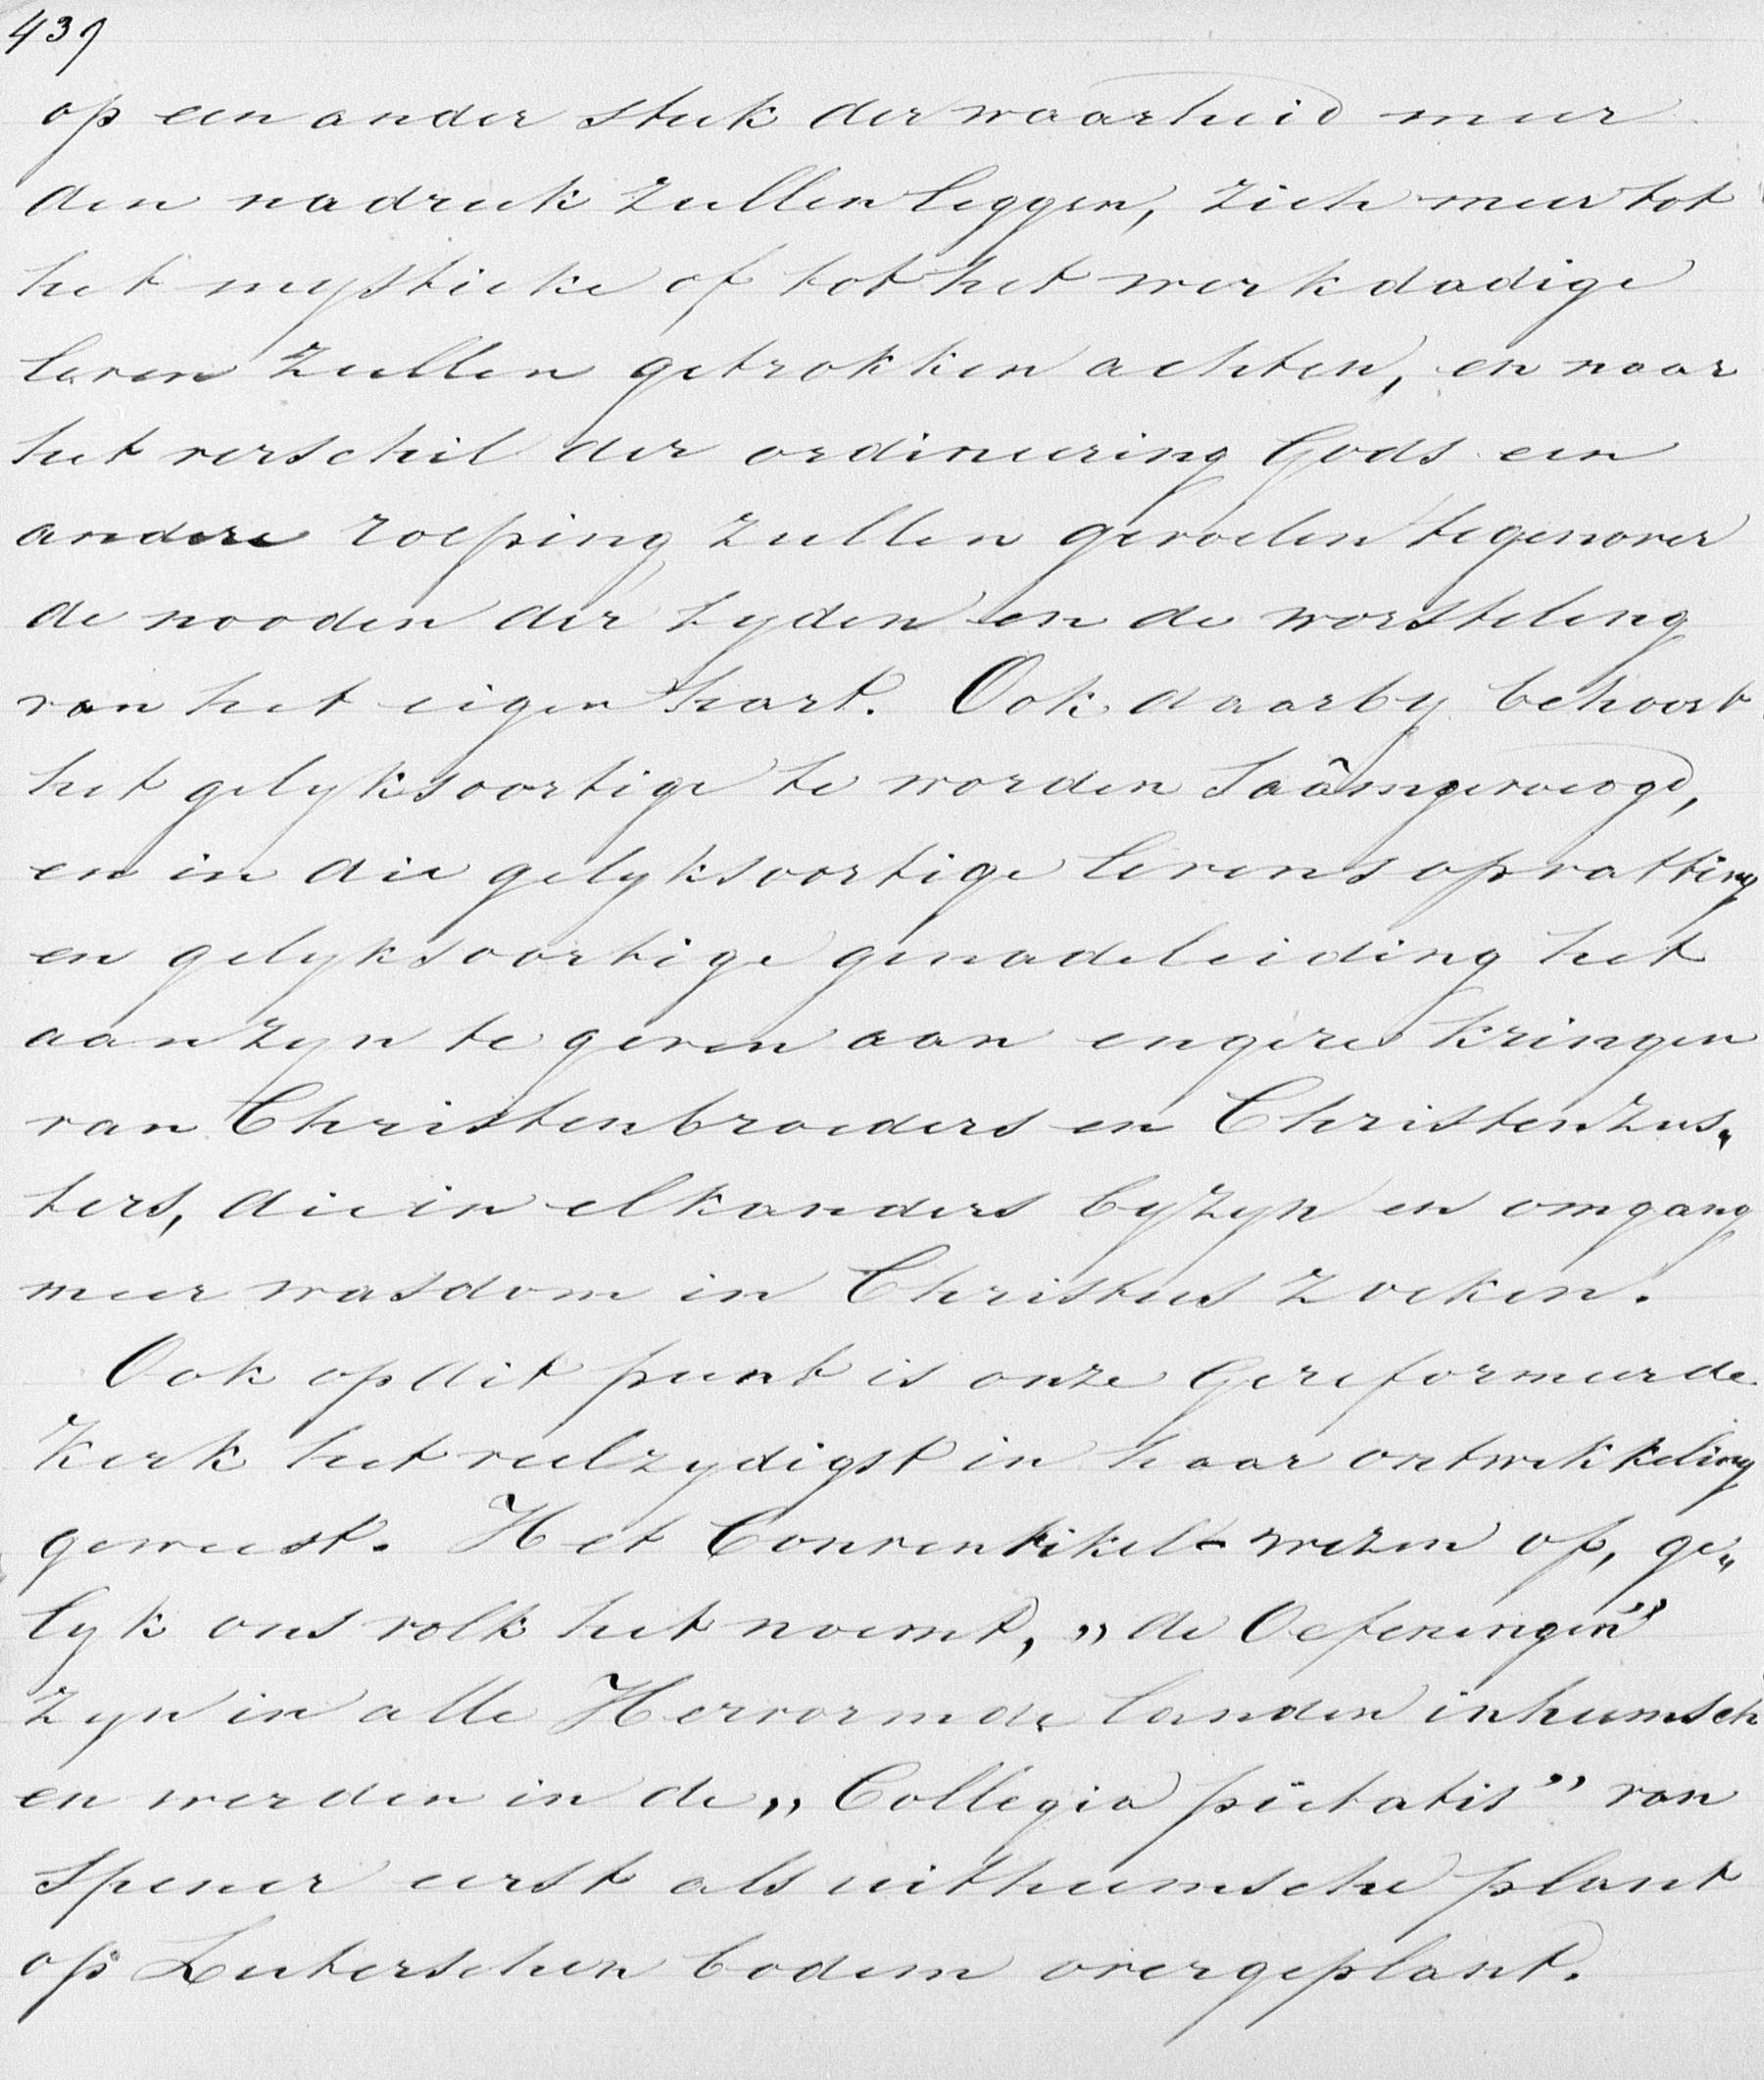 439
op een ander stuk der waarheid meer
den nadruk zullen leggen, zich meer tot
het mystieke of tot het werkdadige
leven zullen getrokken achten, en naar
het verschil der ordineering Gods een
andere roeping zullen gevoelen tegenover
de nooden der tyden en de worsteling
van het eigen hart. Ook daarby behoort
het gelyksoortige te worden saâmgevoegd,
en in die gelyksoortige levensopvatting
en gelyksoortige genadeleiding het
aanzyn te geven aan engere kringen
van Christenbroeders en Christenzus„
ters, die in elkanders byzyn en omgang
meer wasdom in Christus zoeken.
Ook op dit punt is onze Gereformeerde
Kerk het veelzydigst in haar ontwikkeling
geweest. Het Conventikel-wezen of, ge„
lyk ons volk het noemt, „de Oefeningen”
zyn in alle Hervormde landen inheemsch
en werden in de „Collegia pietatis” van
Spener eerst als uitheemsche plant
op Luterschen bodem overgeplant.